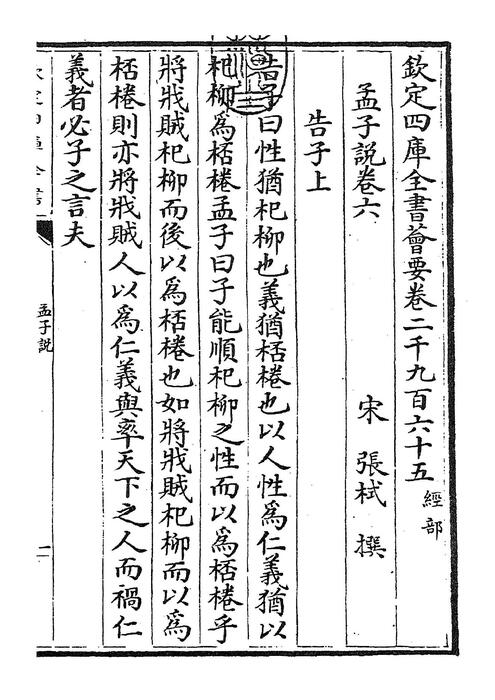 欽定四庫全書薈要卷二千九百六十五 經部
孟子說卷六 宋 張栻 撰
告子上
告子曰性猶杞柳也義猶桮棬也以人性為仁義猶以
杞柳為桮棬孟子曰子能順杞柳之性而以為桮棬乎
將戕賊杞柳而後以為桮棬也如將戕賊杞柳而以為
桮棬則亦將戕賊人以為仁義與率天下之人而禍仁
義者必子之言夫
孟子說